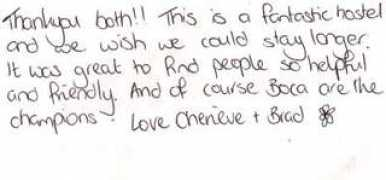 Thankyou both!! This is a fantastic hostel
and we wish we could stay longer.
It was great to find people so helpful
and friendly. And of course Boca are the
champions! Love Chenieve + Brad